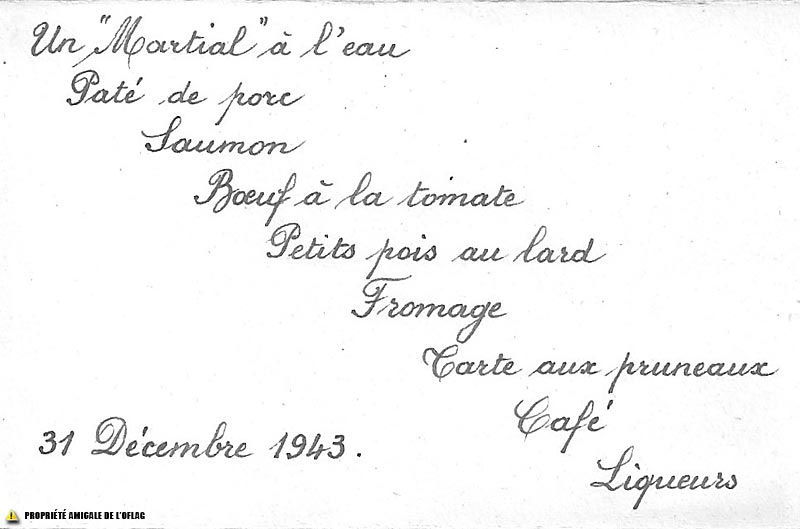 Un "Martial" à l'eau
Paté de porc
Saumon
Bœuf à la tomate
Petits pois au lard
Fromage
Tarte aux pruneaux
Café
31 Décembre 1943.
Liqueurs
PROPRIÉTÉ AMICALE DE L'OFLAG